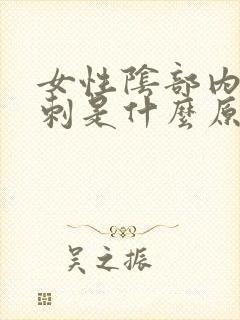 女性陰部内
刺是什麼原
吴之振